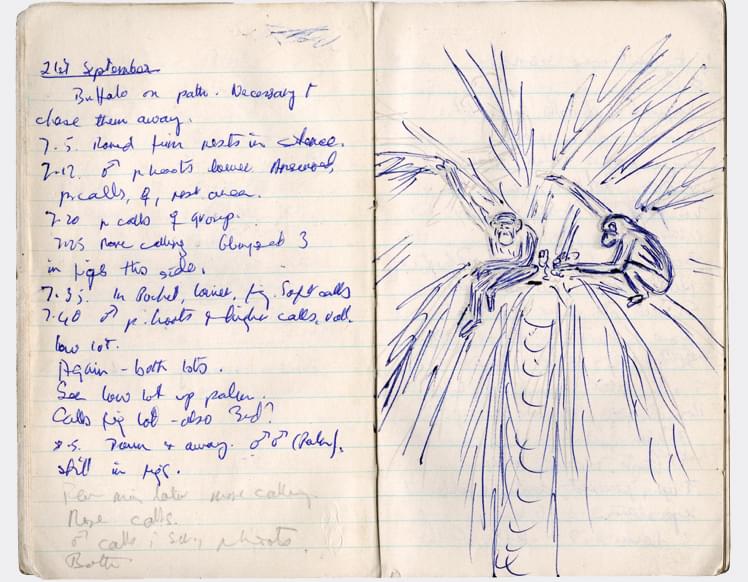 21st September
Buffalo on path. Necessary t
chase them away.
7.5. Found firm nests in
7.12. ♂ p. hoots lower. Answered,
p. calls, ♀, nest area.
7.20 p calls ♀ group.
7.25 More calling. Glimpsed 3
in figs this side.
7.35. In Pocket, lower, fig. Soft calls
7.40 ♂ p. hoots & higher calls.
low lot.
Again - both lots.
See low lot up palm.
Calls fig lot - also 3rd?
8.5. Down & away. ♂♂ (Palm).
still in figs.
Few min later more calling.
More calls.
♂ calls p hoots
Both